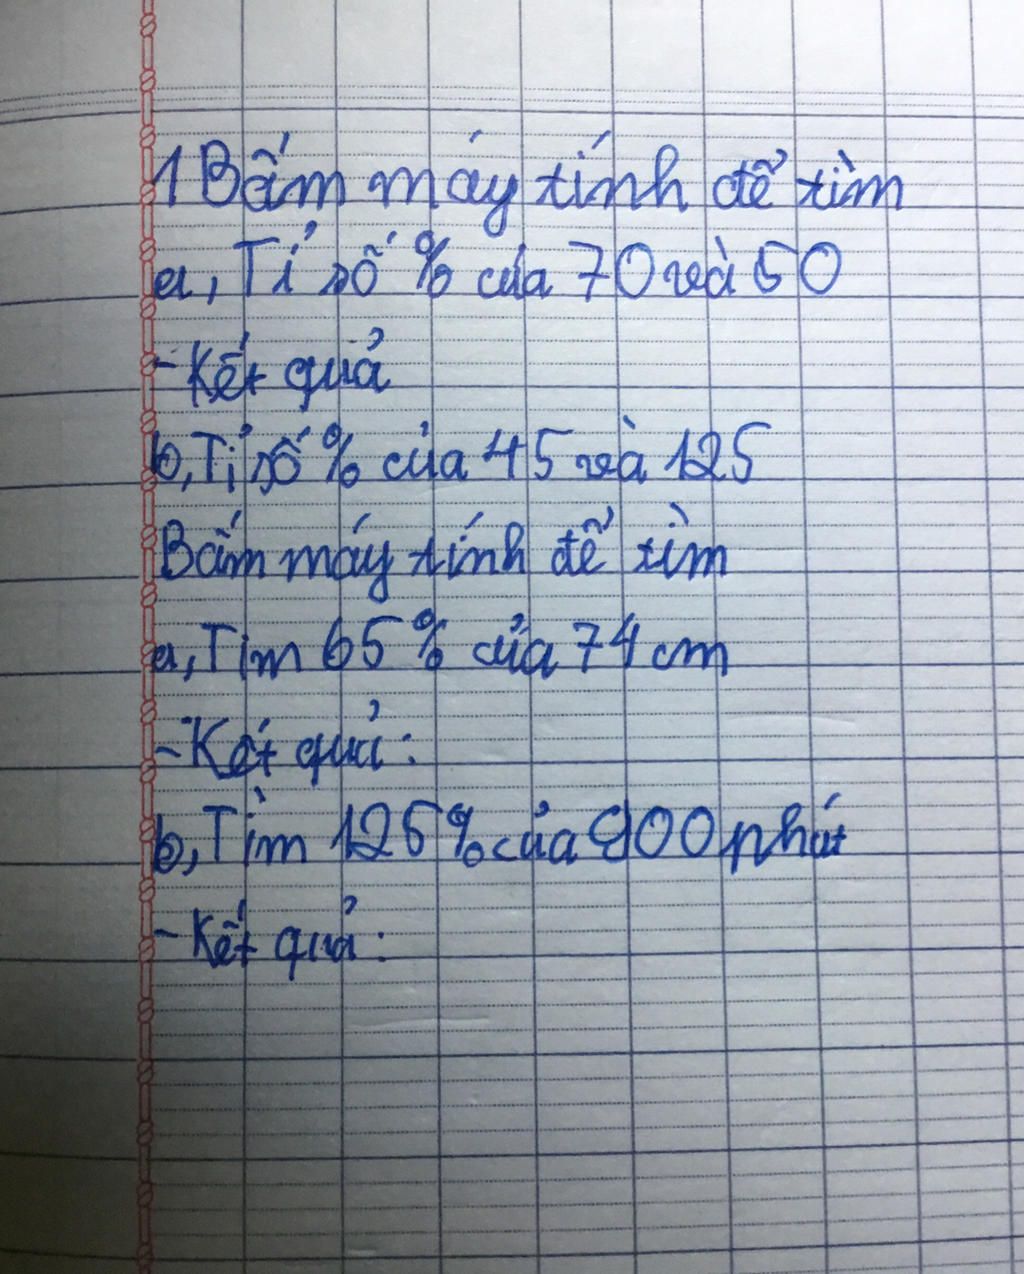 1 Bấm máy tính để tìm
a, Tỉ số % của 70 và 50
- Kết quả
b, Tỉ số % của 45 và 125
Bấm máy tính để tìm
a, Tìm 65 % của 74 cm
- Kết quả :
b, Tìm 126 % của 900 phút
- Kết quả :